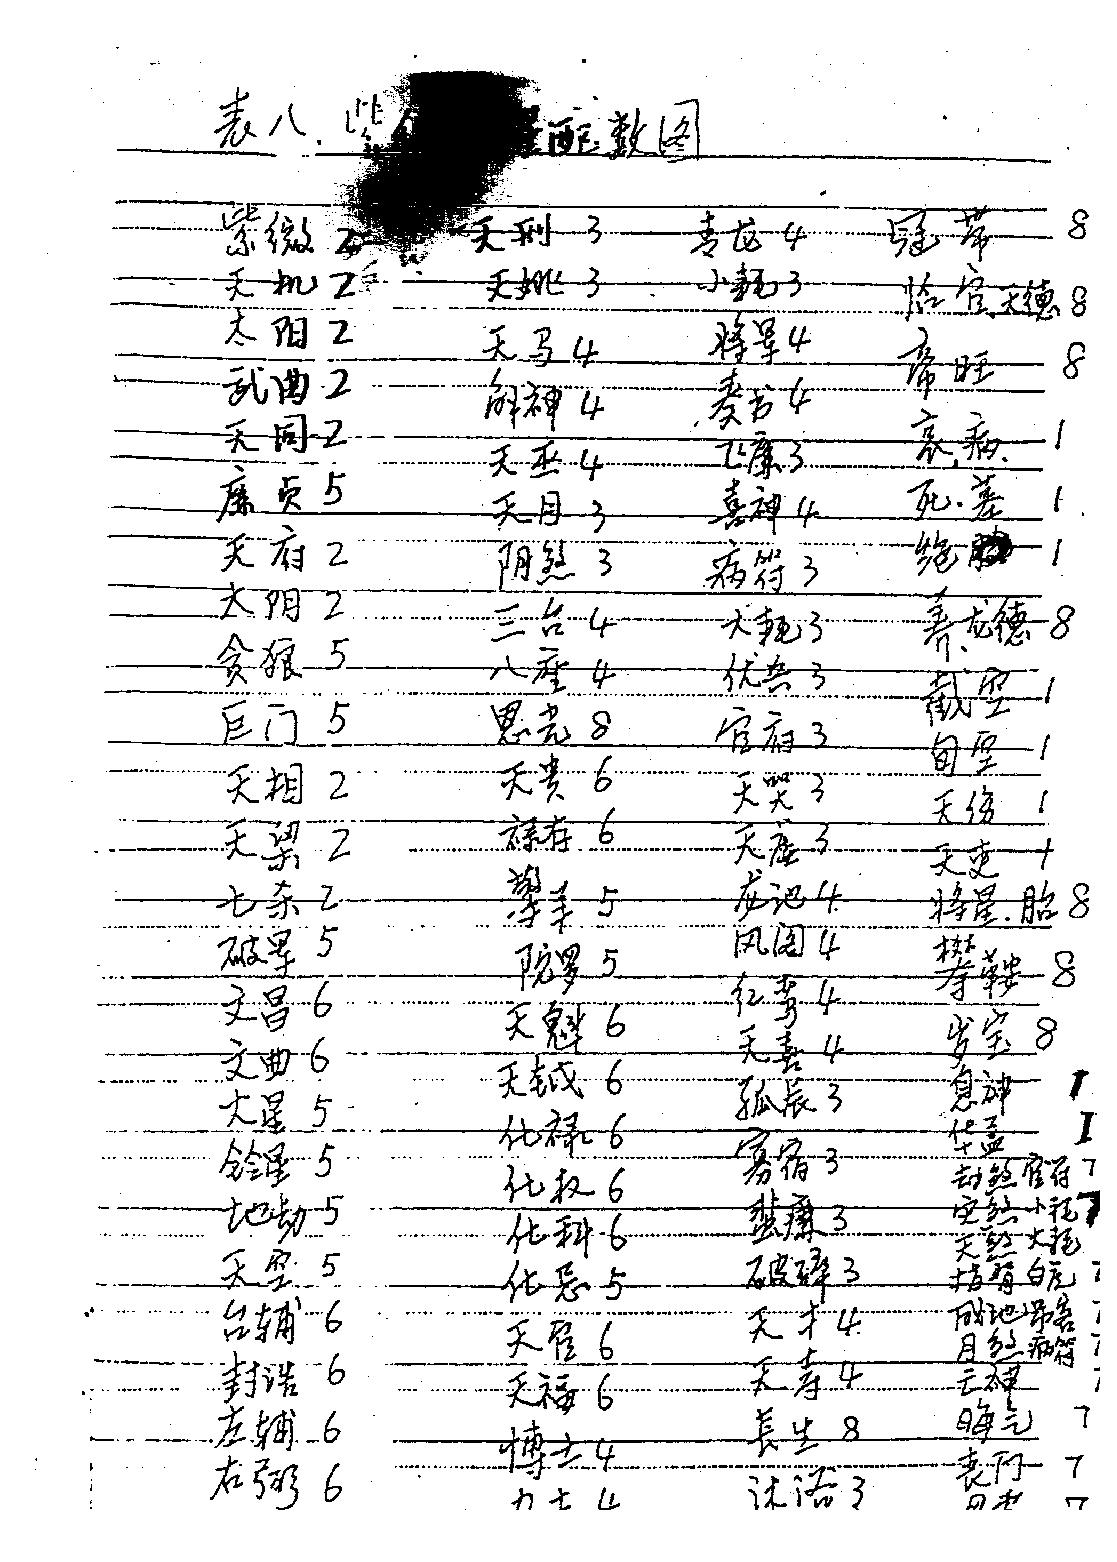 表八.紫 配数图
紫微 2
天机 2
太阳 2
武曲 2
天同 2
廉贞 5
天府 2
太阴 2
贪狼 5
巨门 5
天相 2
天梁 2
七杀 2
破军 5
文昌 6
文曲 6
火星 5
铃星 5
地劫 5
天空 5
台辅 6
封诰 6
左辅 6
右弼 6
天刑 3
天姚 3
天马 4
解神 4
天巫 4
天月 3
阴煞 3
三台 4
八座 4
恩光 8
天贵 6
禄存 6
擎羊 5
陀罗 5
天魁 6
天钺 6
化禄 6
化权 6
化科 6
化忌 5
天官 6
天福 6
博士 4
力士 4
青龙 4
小耗 3
将军 4
奏书 4
飞廉 3
喜神 4
病符 3
大耗 3
伏兵 3
官府 3
天哭 3
天虚 3
龙池 4
凤阁 4
红鸾 4
天喜 4
孤辰 3
寡宿 3
蜚廉 3
破碎 3
天才 4
天寿 4
長生 8
沐浴 3
冠带 8
临官.天德 8
帝旺 8
衰.病. 1
死.墓 1
绝 1
养.龙德 8
截空 1
旬空 1
天伤 1
天使 1
将星.胎 8
攀鞍 8
岁 8
息神 1
华盖 1
劫煞 官符 7
灾煞 小耗 7
天煞 大耗
指背 白虎 7
咸池 吊客 7
月煞 病符 7
亡神 7
晦气 7
丧门 7
7